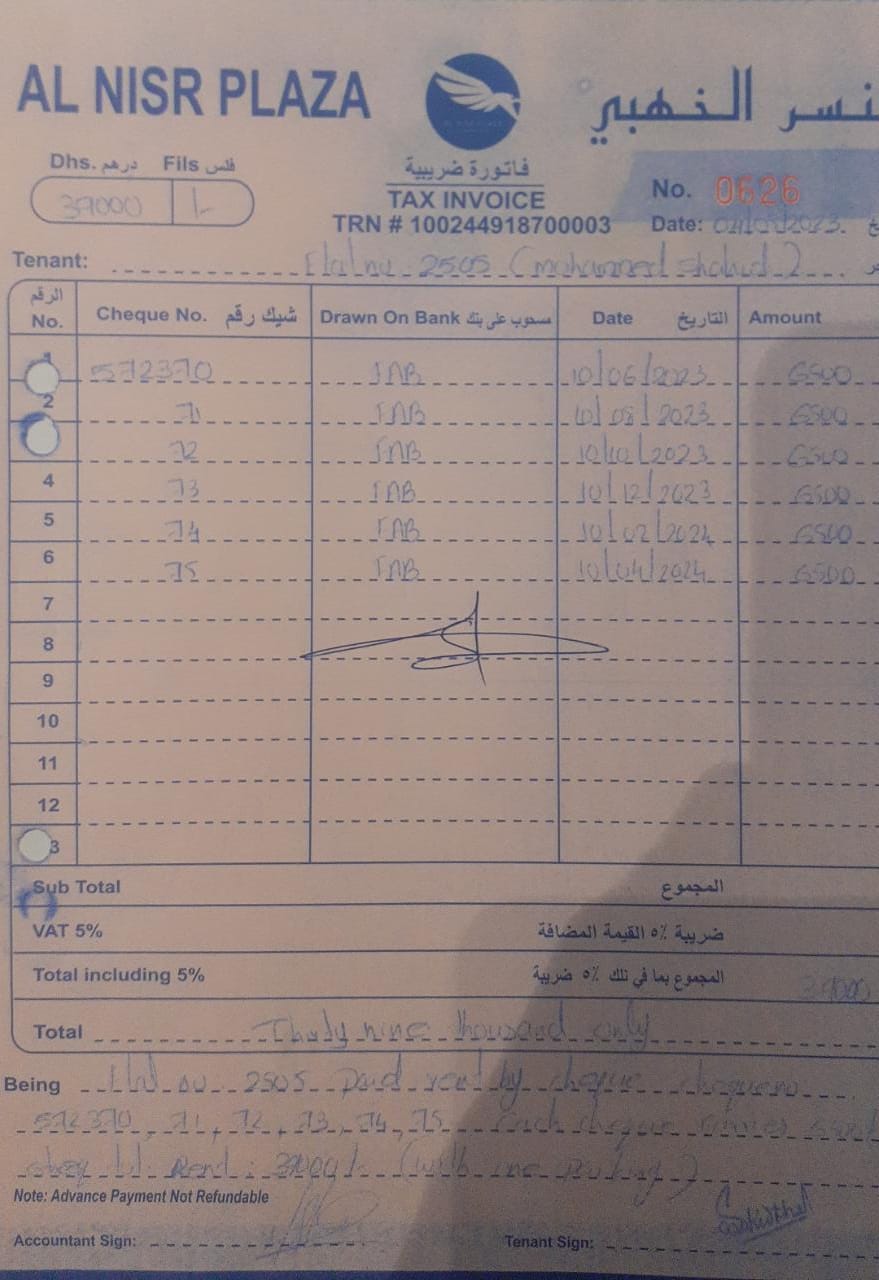 AL NISR PLAZA
نسر الذهبي
Dhs. درهم Fils فلس
39000 /-
فاتورة ضريبية
TAX INVOICE
TRN # 100244918700003
No. 0626
Date: /2023.
Tenant: Flat no. 2505 (mohammed Shahid)
الرقم
No. Cheque No. شيك رقم Drawn On Bank مسحوب على بنك Date التاريخ Amount
1 572370 FAB 10/06/2023 6500
2 71 FAB 10/08/2023 6500
72 FAB 10/10/2023 6500
4 73 FAB 10/12/2023 6500
5 74 FAB 10/02/2024 6500
6 75 FAB 10/04/2024 6500
7
8
9
10
11
12
3
Sub Total المجموع
VAT 5% ضريبة ٥٪ القيمة المضافة
Total including 5% المجموع بما في تلك ٥٪ ضريبة 39000
Total Thirty nine thousand only
Being Flat no. 2505 paid rent by cheque cheque no
572370, 71, 72, 73, 74, 75 Each cheque 6500/
Rent: 39000/- (with one Parking)
Note: Advance Payment Not Refundable
Accountant Sign: Tenant Sign: